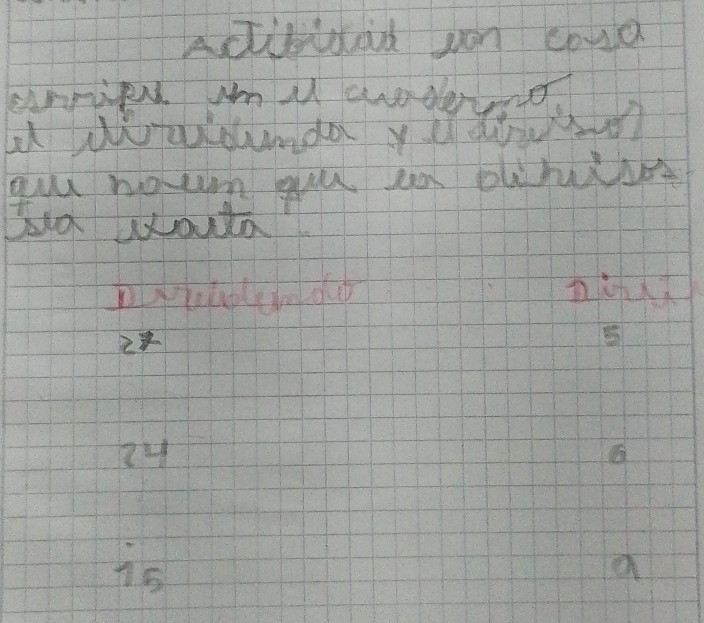 Actibidad en casa
escriben en el cuaderno
el dividendo y el divisor
que hacen que la división
sea exacta
Dividendo Divi
27 5
24 6
15 9